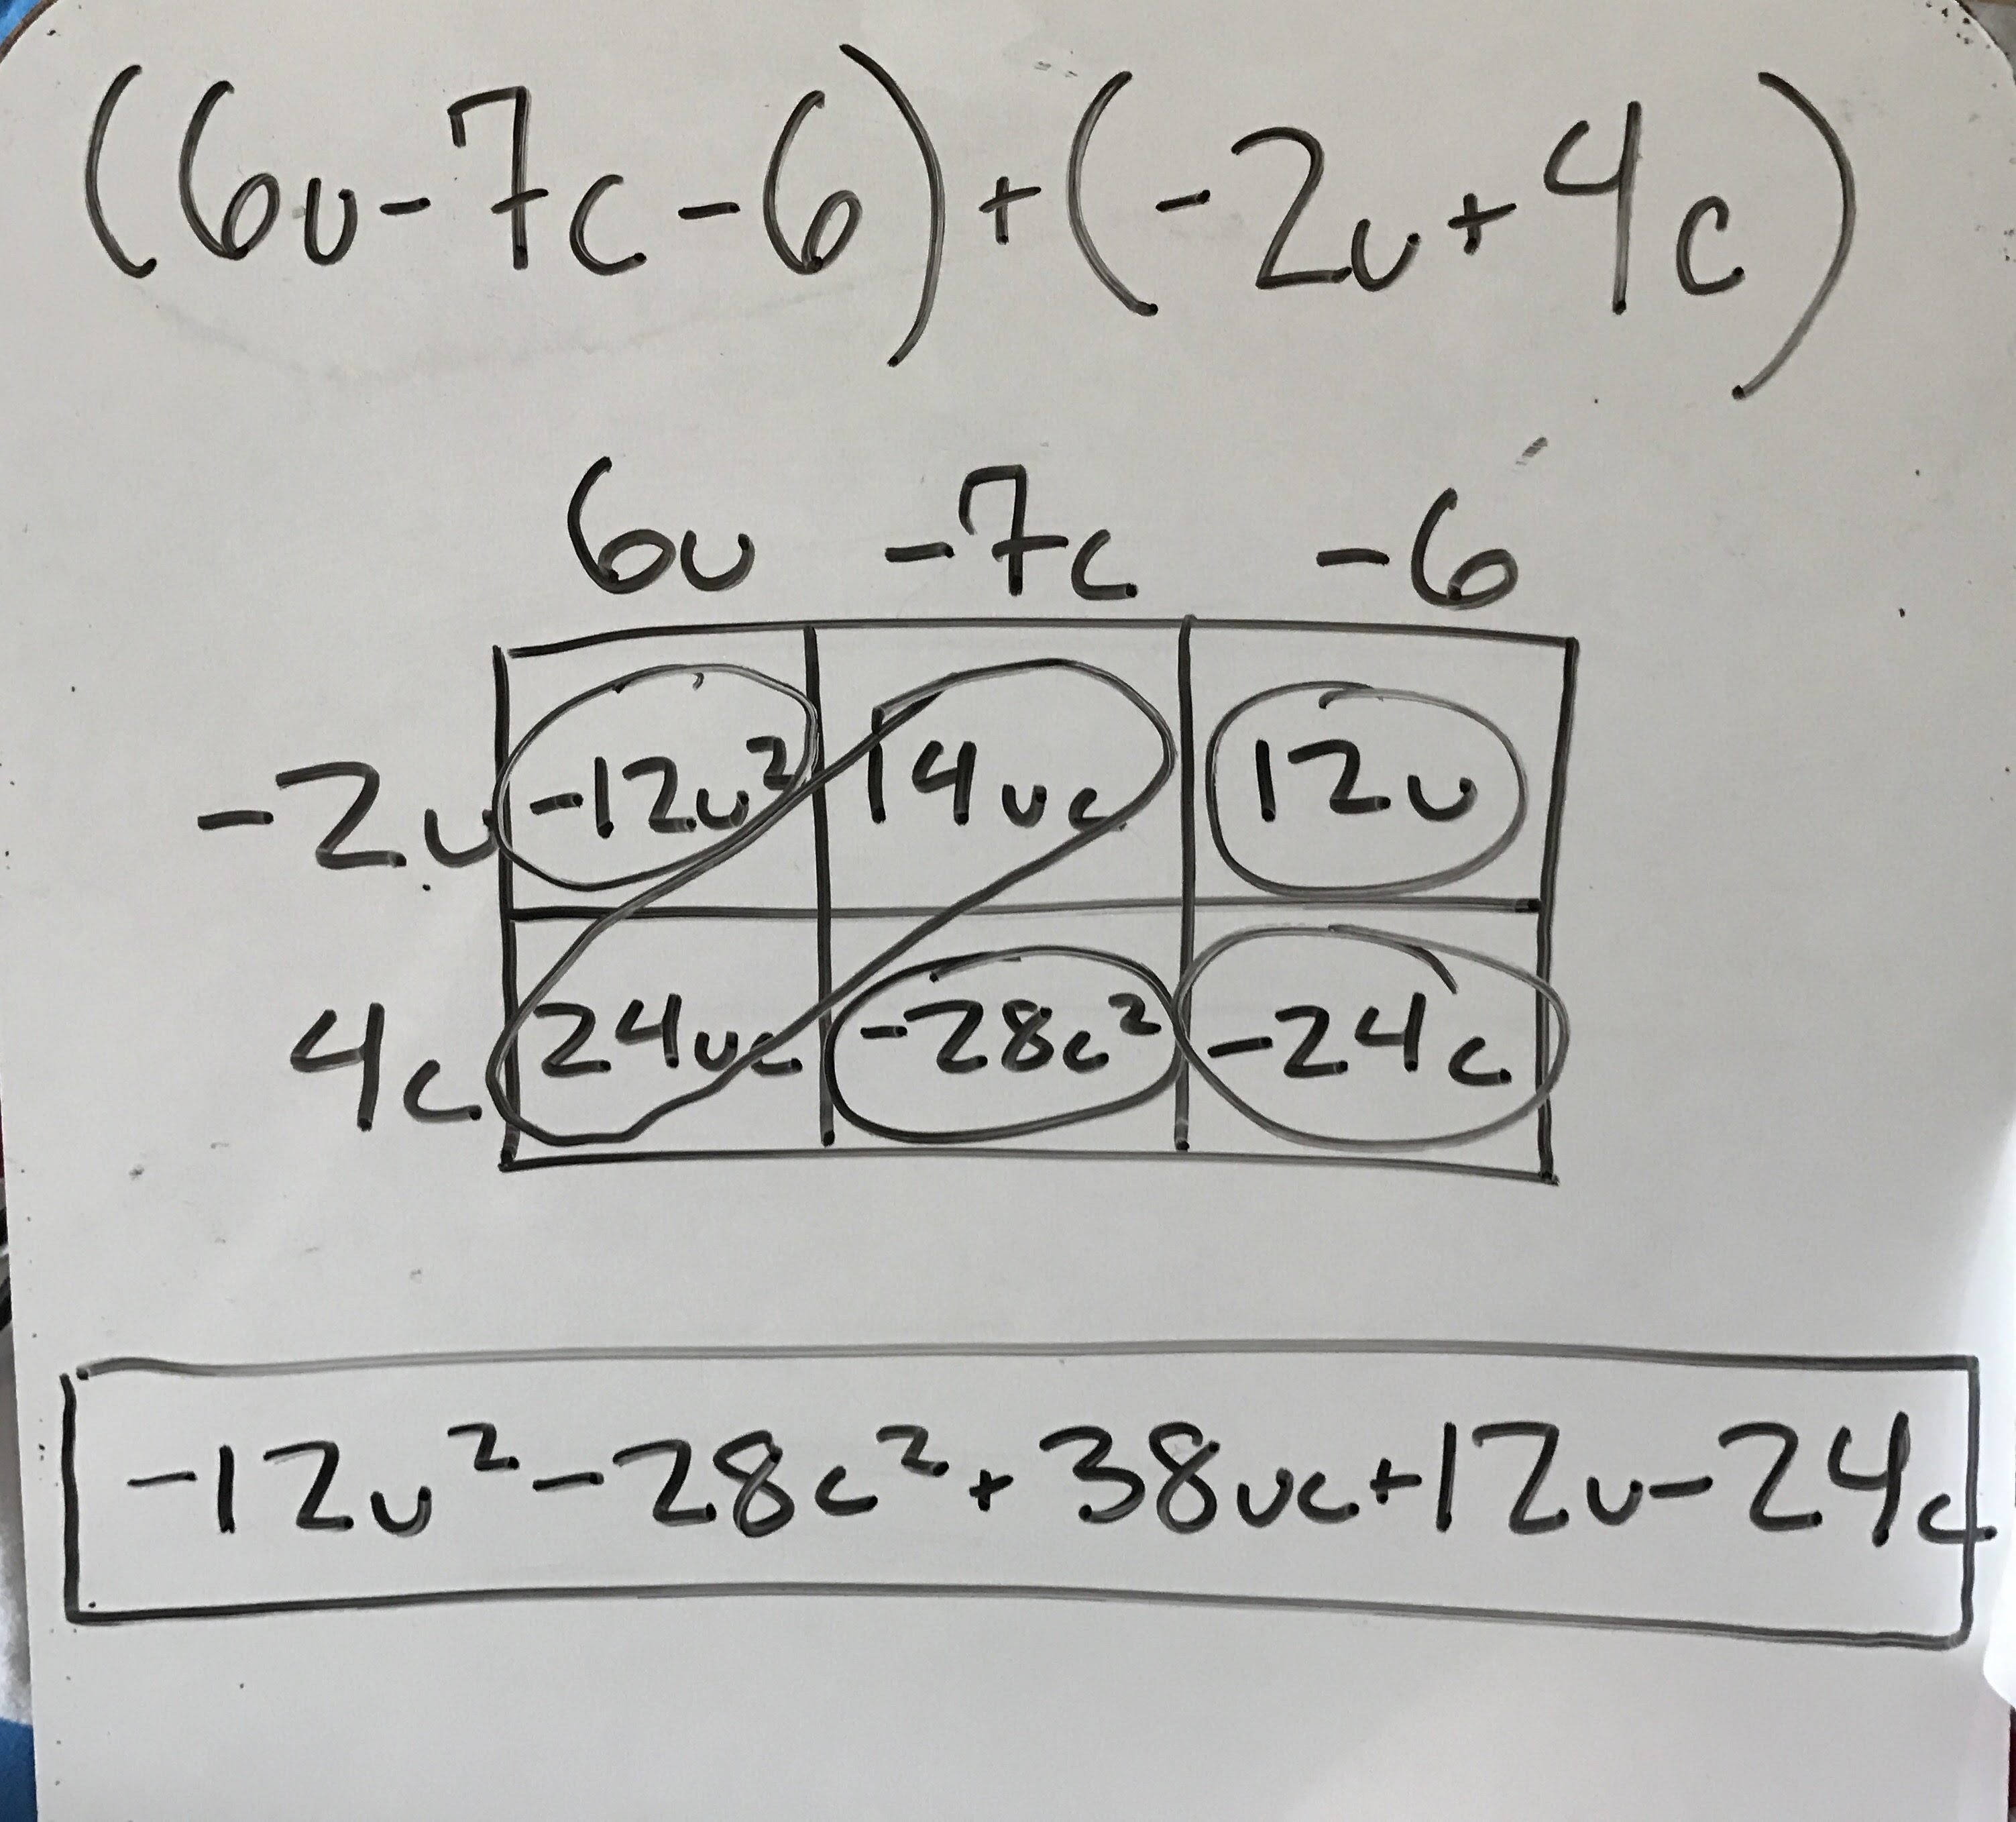 (6u-7c-6)+(-2u+4c)
6u -7c -6
-2u -12u² 14uc 12u
4c 24uc -28c² -24c
-12u²-28c²+38uc+12u-24c